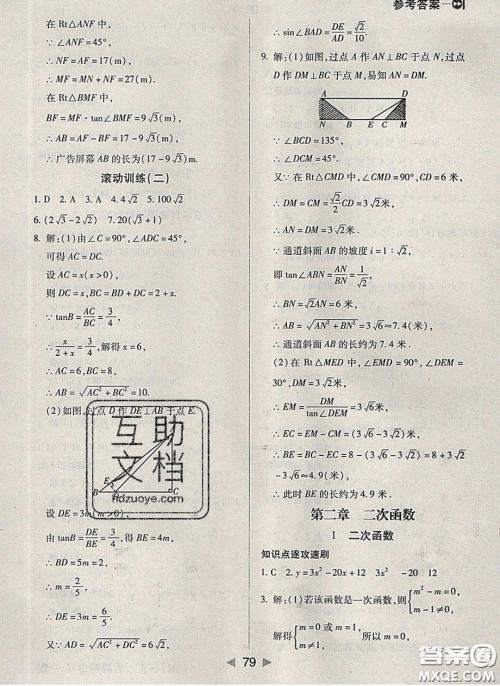 参考答案
在 Rt△ANF 中,
∵∠ANF=45°,
∴NF=AF=17(m),
∴MF=MN+NF=27(m).
在 Rt△BMF 中,
BF=MF·tan∠BMF=9√3(m),
∴AB=AF-BF=17-9√3(m).
∴广告屏幕 AB 的长为(17-9√3)m.
滚动训练(二)
1. D 2. A 3. A 4. 4√2 5. 100√2
6. (2√3-2√2) 7. 20(√3+1)
8. 解:(1)由∠C=90°,∠ADC=45°,
可得 AC=DC.
设 AC=x(x>0),
则 DC=x,BC=BD+DC=2+x,
∵tanB=AC/BC=3/4,
∴x/(2+x)=3/4,解得 x=6,
∴AC=6,BC=8,
∴AB=√(AC²+BC²)=10.
(2)如图,过点 D 作 DE⊥AB 于点 E.
互助
文档
hdzuoye.com
B C
设 DE=3m
由 tanB=DE/BE=3/4,得 BE=4m,
∴BD=5m=2,
∴m=2/5,
∴DE=6/5.
又∵AD=√(AC²+DC²)=6√2,
∴sin∠BAD=DE/AD=√2/10.
9. 解:(1)如图,过点 A 作 AN⊥BC 于点 N,过点
D 作 DM⊥BC 于点 M,易知 AN=DM.
A D
N B E C M
∵∠BCD=135°,
∴∠DCM=45°.
又∵在 Rt△CMD 中,∠CMD=90°,
∴DM=CM=√2/2 CD=3√2米,
∴AN=DM=3√2米.
∵通道斜面 AB 的坡度 i=1:√2,
即 tan∠ABN=AN/BN=1/√2,
∴BN=√2AN=6 米,
∴AB=√(AN²+BN²)=3√6≈7.4(米),
∴通道斜面 AB 的长约为 7.4 米.
(2)在 Rt△MED 中,∠EMD=90°,∠DEM=
30°,
∴EM=DM/tan∠DEM=3√6米,
∴EC=EM-CM=(3√6-3√2)米,
∴BE=BC-EC=8-(3√6-3√2)=8+3√2
-3√6≈4.9(米),
∴此时 BE 的长约为 4.9 米.
第二章 二次函数
1 二次函数
知识点逐攻速刷
1. C 2. y=3x²-20x+12 3x² -20 12
3. 解:(1)若该函数是一次函数,则{m²-m=0, m-1≠0,
解得{m=0 或 m=1, m≠1,
79
答案圈
MXQE.COM